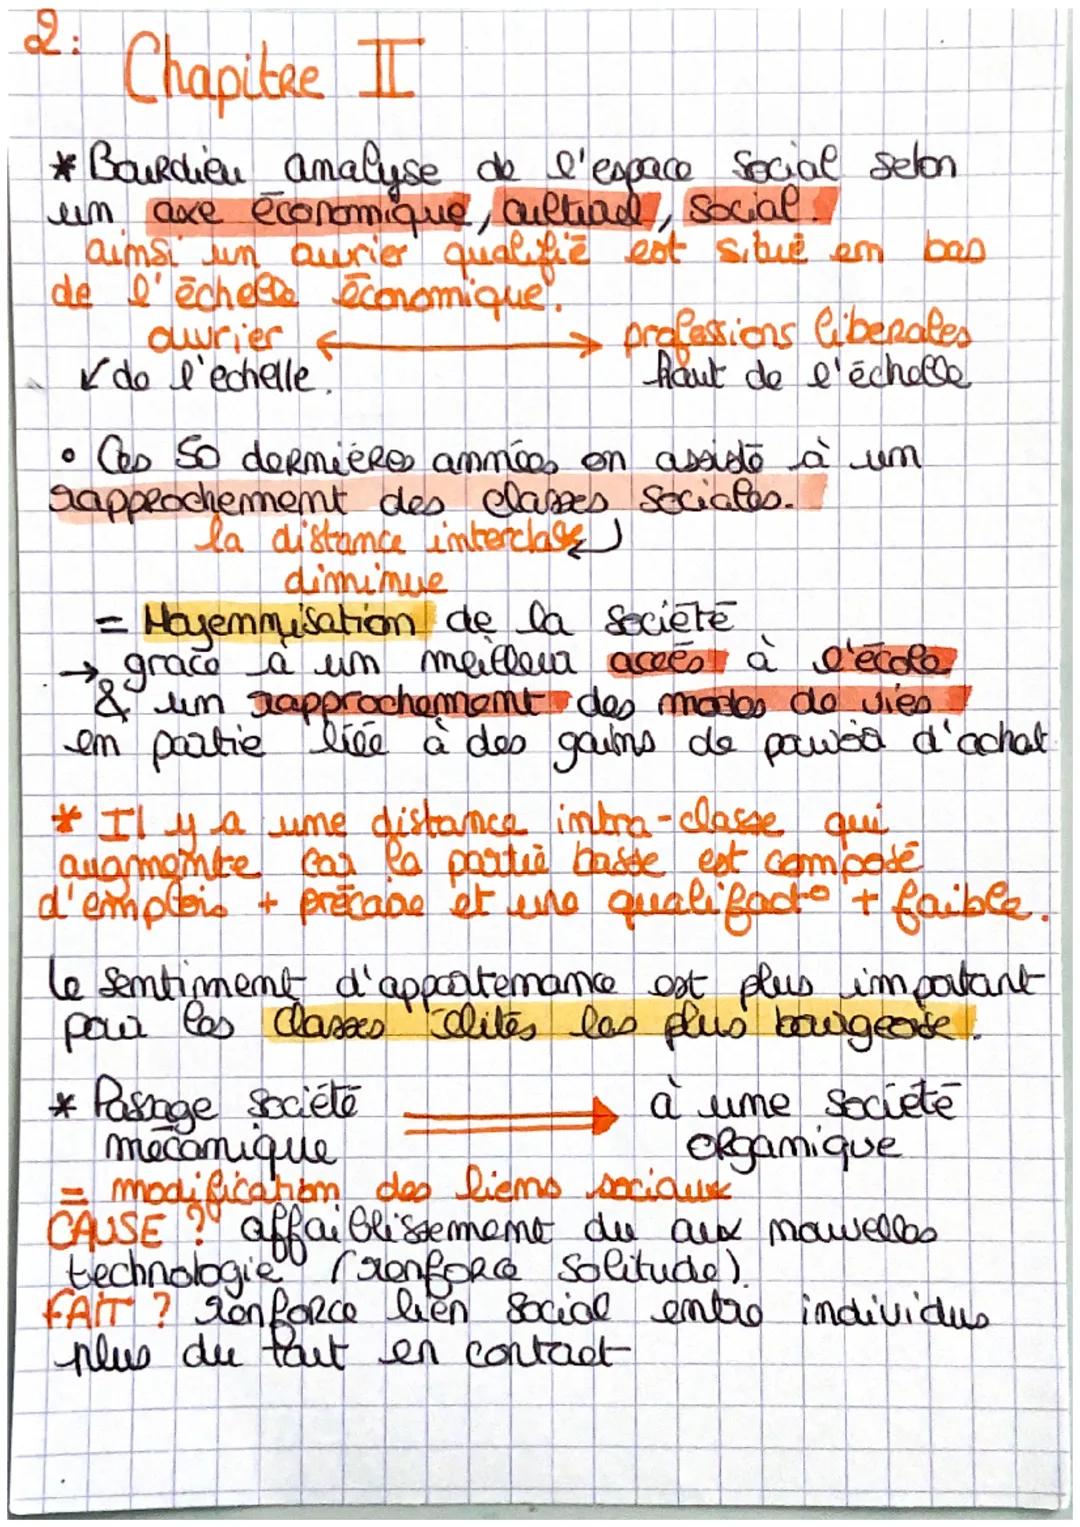 2: Chapitre II
* Bourdieu analyse de l'espace social selon
un axe économique, culturel, social.
ainsi un ouvrier qualifié est situé en bas
de l'échelle économique.
ouvrier ↔ professions liberales
↙ de l'echelle. haut de l'échelle
• Ces 50 dernières années on assisté à un
rapprochement des classes sociales.
la distance interclasse
diminue
= Moyennisation de la société
→ grace à un meilleur accès à l'école
& un rapprochement des modes de vies
en partie liée à des gains de pouvoir d'achat
* Il y a une distance intra-classe qui
augmente car la partie basse est composé
d'emplois + précaire et une qualificato + faible.
le sentiment d'appartenance est plus important
pour les classes élites les plus bourgeoise.
* Passage société ⇒ à une société
mécanique organique
= modification des liens sociaux
CAUSE ? affaiblissement du aux nouvelles
technologie (renforce solitude).
FAIT ? renforce lien social entre individus
plus du tout en contact